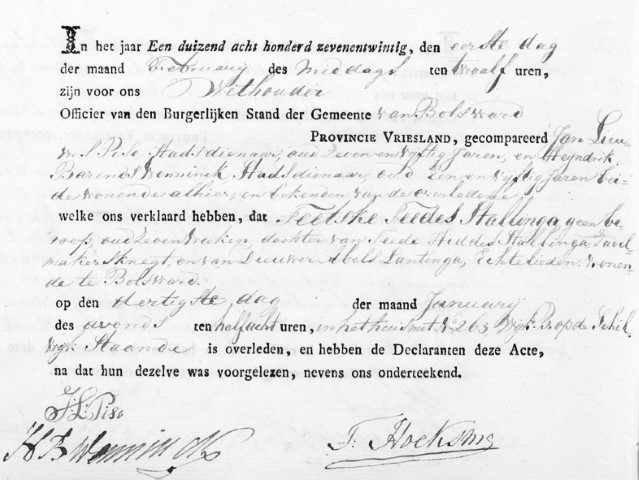 In het jaar Een duizend acht honderd zevenentwintig, den eerste dag
der maand February des middags ten twaalf uren,
zijn voor ons Wethouder
Officier van den Burgerlijken Stand der Gemeente van Bolsward
PROVINCIE VRIESLAND, gecompareerd Jan
Piso Stadsdienaar, oud zeven en vyftig Jaren, en Heyndrik
Barends Wenninck Stadsdienaar, oud een en vyftig Jaren bei-
de wonende alhier, en bekenden van de overledene
welke ons verklaard hebben, dat Feetske Feedes Stallinga geen be-
roep, oud zeven weken, dochter van Feede Hiddes Stallinga
makersknegt, en van Dieuwer Abels Lantinga, Echtelieden wonen-
de te Bolsward
op den dertigste dag der maand January
des avonds ten half acht uren, in het huis N 263 Wyk B op de Schil
wyk Staande is overleden, en hebben de Declaranten deze Acte,
na dat hun dezelve was voorgelezen, nevens ons onderteekend.
J L Piso
H B Wenninck F. Hoeksma